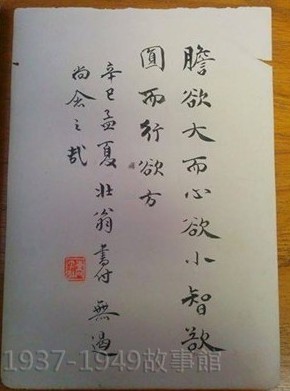 膽欲大而心欲小智欲
圓而行欲方
辛巳孟夏壯翁書付無過
尚念之哉
1937-1949故事館